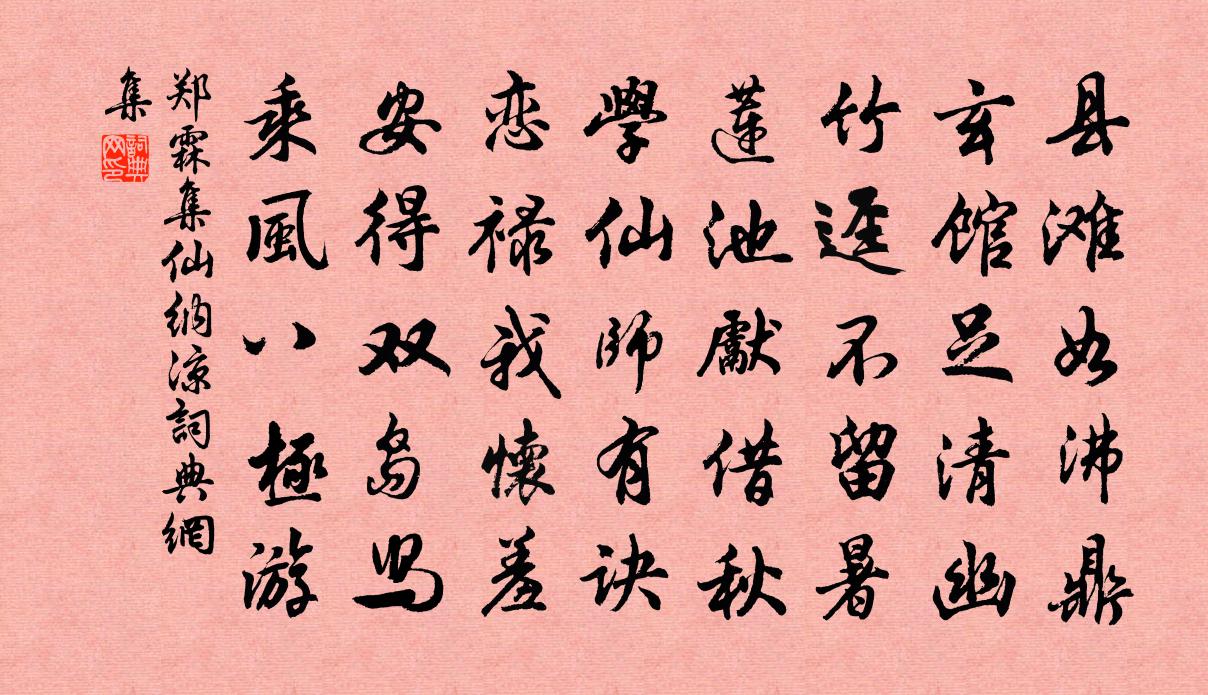 县滩如沸鼎
玄館足清幽
竹逕不留暑
蓮池獻借秋
學仙師有诀
恋禄我懷羞
安得双凫舄
乘風八極游
郑霖集仙納凉詞典網
集
詞典网印